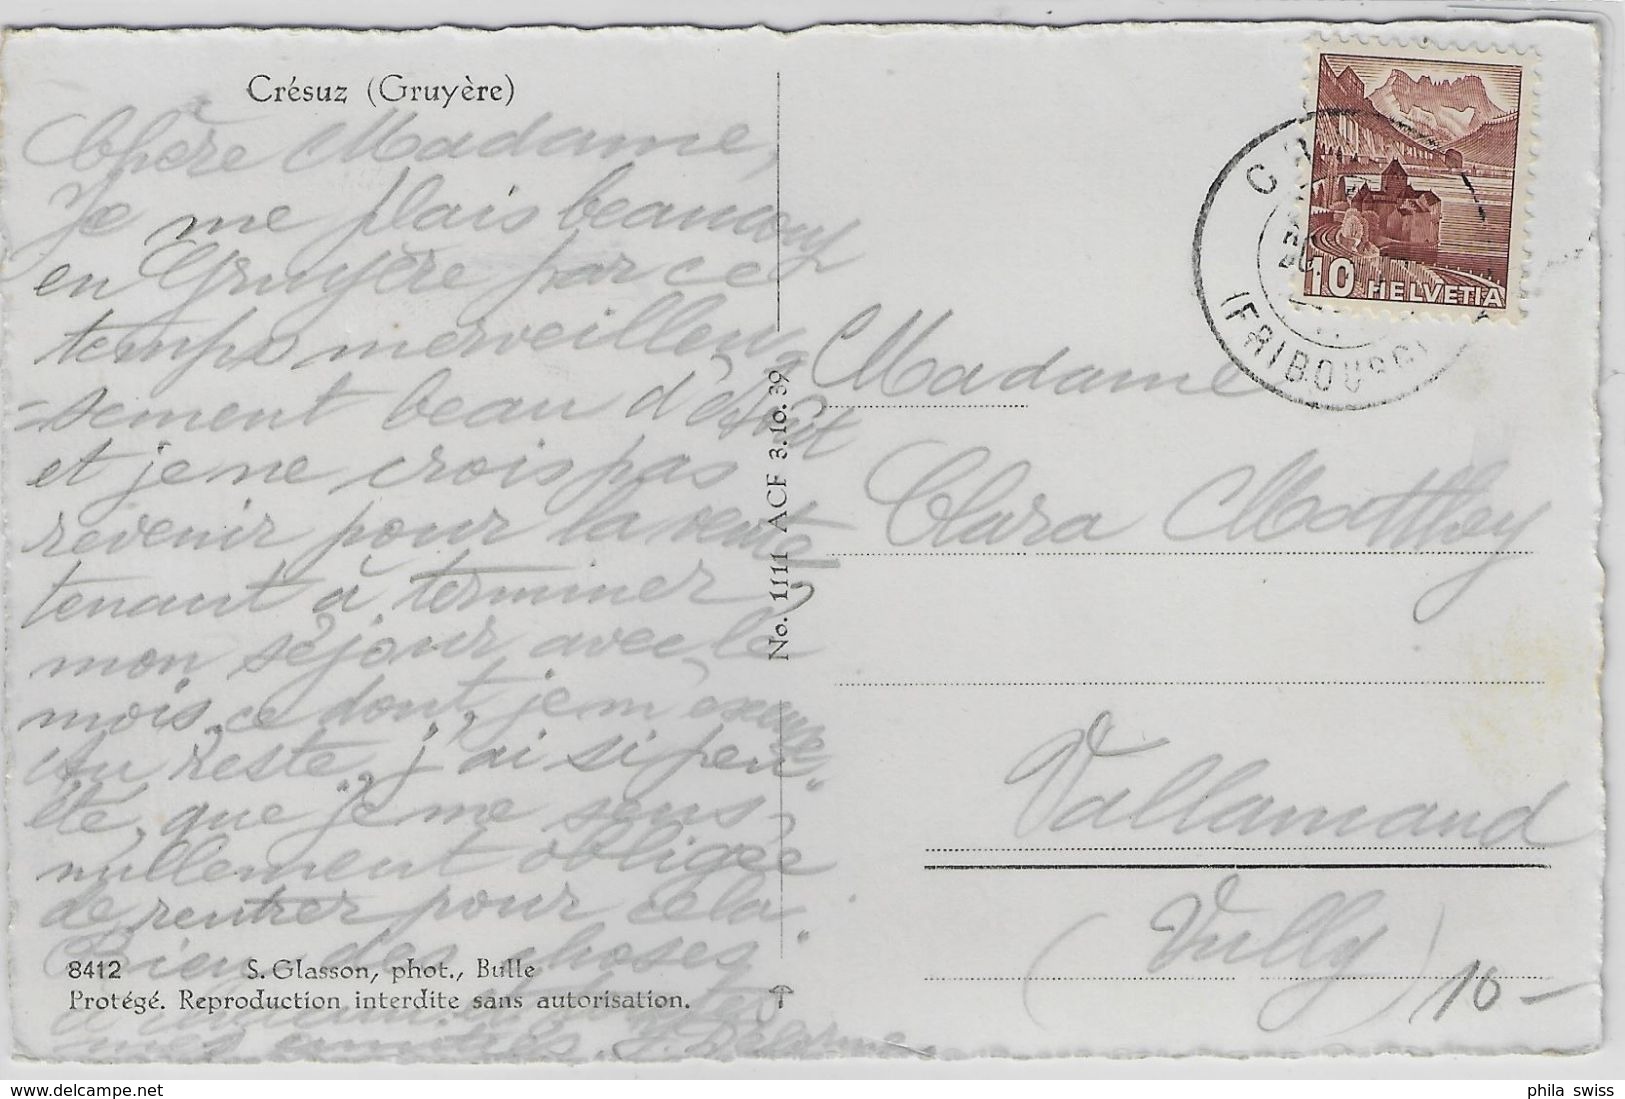 Crésuz (Gruyère)
Chère Madame,
Je me plais beaucoup
en Gruyère par ce
temps merveilleu
=sement beau d'août
et je ne crois pas
revenir pour la vente
tenant à terminer
mon séjour avec le
mois, ce dont je m'excuse.
Au reste, j'ai si peu
été, que je me sens
nullement obligée
de rentrer pour cela.
Bien des choses
mes amitiés. J. Delorme
8412 S. Glasson, phot., Bulle
Protégé. Reproduction interdite sans autorisation.
No. 1111 ACF 3.10.39
10 HELVETIA
(FRIBOURG)
Madame
Clara Matthey
Vallamand
(Vully)
10-
delcampe.net
phila swiss